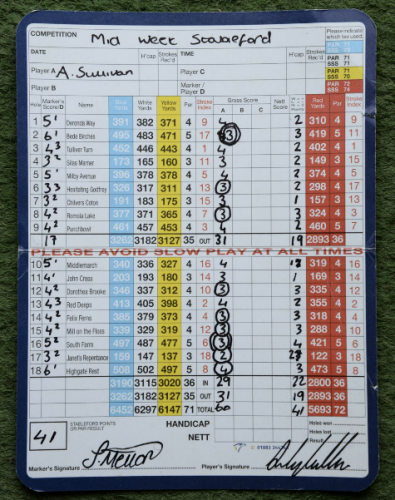 COMPETITION Mid Week Stableford
DATE H'cap Strokes Rec'd TIME H'cap Strokes Rec'd Please indicate which tee used
Player A A. Sullivan Player C PAR 72 SSS 71
Player B Marker/Player D PAR 71 SSS 70
PAR 72 SSS 74
Hole Marker's Score Name White Yards Yellow Yards Par Stroke Index Gross Score A B C Nett Score Red Yards Par Stroke Index
1 5' Deronda Way 391 382 371 4 9 4 2 310 4 9
2 6' Bede Birches 495 483 471 5 17 3 3 419 5 11
3 4 3 Tulliver Turn 452 446 443 4 1 4 2 402 4 1
4 3 2 Silas Marner 173 165 160 3 11 3 2 149 3 15
5 5' Milby Avenue 396 378 378 4 5 4 2 374 4 5
6 3 3 Hesitating Godfrey 326 317 311 4 13 3 2 298 4 17
7 3 2 Chilvers Coton 191 183 175 3 15 3 1 157 3 13
8 4 2 Romola Lake 377 371 365 4 7 3 3 324 4 3
9 4 2 Punchbowl 461 457 453 4 3 4 2 460 5 7
17 3262 3182 3127 35 OUT 31 19 2893 36
PLEASE AVOID SLOW PLAY AT ALL TIMES
10 5' Middlemarch 340 336 327 4 16 4 319 4 16
11 4' John Cross 203 193 180 3 14 3 1 169 3 14
12 4 2 Dorothea Brooke 346 337 312 4 10 3 3 335 4 12
13 4 3 Red Deeps 413 405 398 4 2 4 2 355 4 2
14 4 2 Felix Ferns 385 379 373 4 4 3 3 318 4 4
15 4 2 Mill on the Floss 339 329 319 4 12 3 3 288 4 10
16 5 2 South Farm 497 487 477 5 6 3 4 421 5 6
17 3 2 Janet's Repentance 159 147 137 3 18 2 122 3 18
18 6' Highgate Rest 508 502 497 5 8 4 3 473 5 8
3190 3115 3020 36 IN 29 22 2800 36
3262 3182 3127 35 OUT 31 19 2893 36
6452 6297 6147 71 TOTAL 60 41 5693 72
41 STABLEFORD POINTS OR PAR RESULT HANDICAP Holes won
NETT Holes lost
Result
Marker's Signature Player's Signature